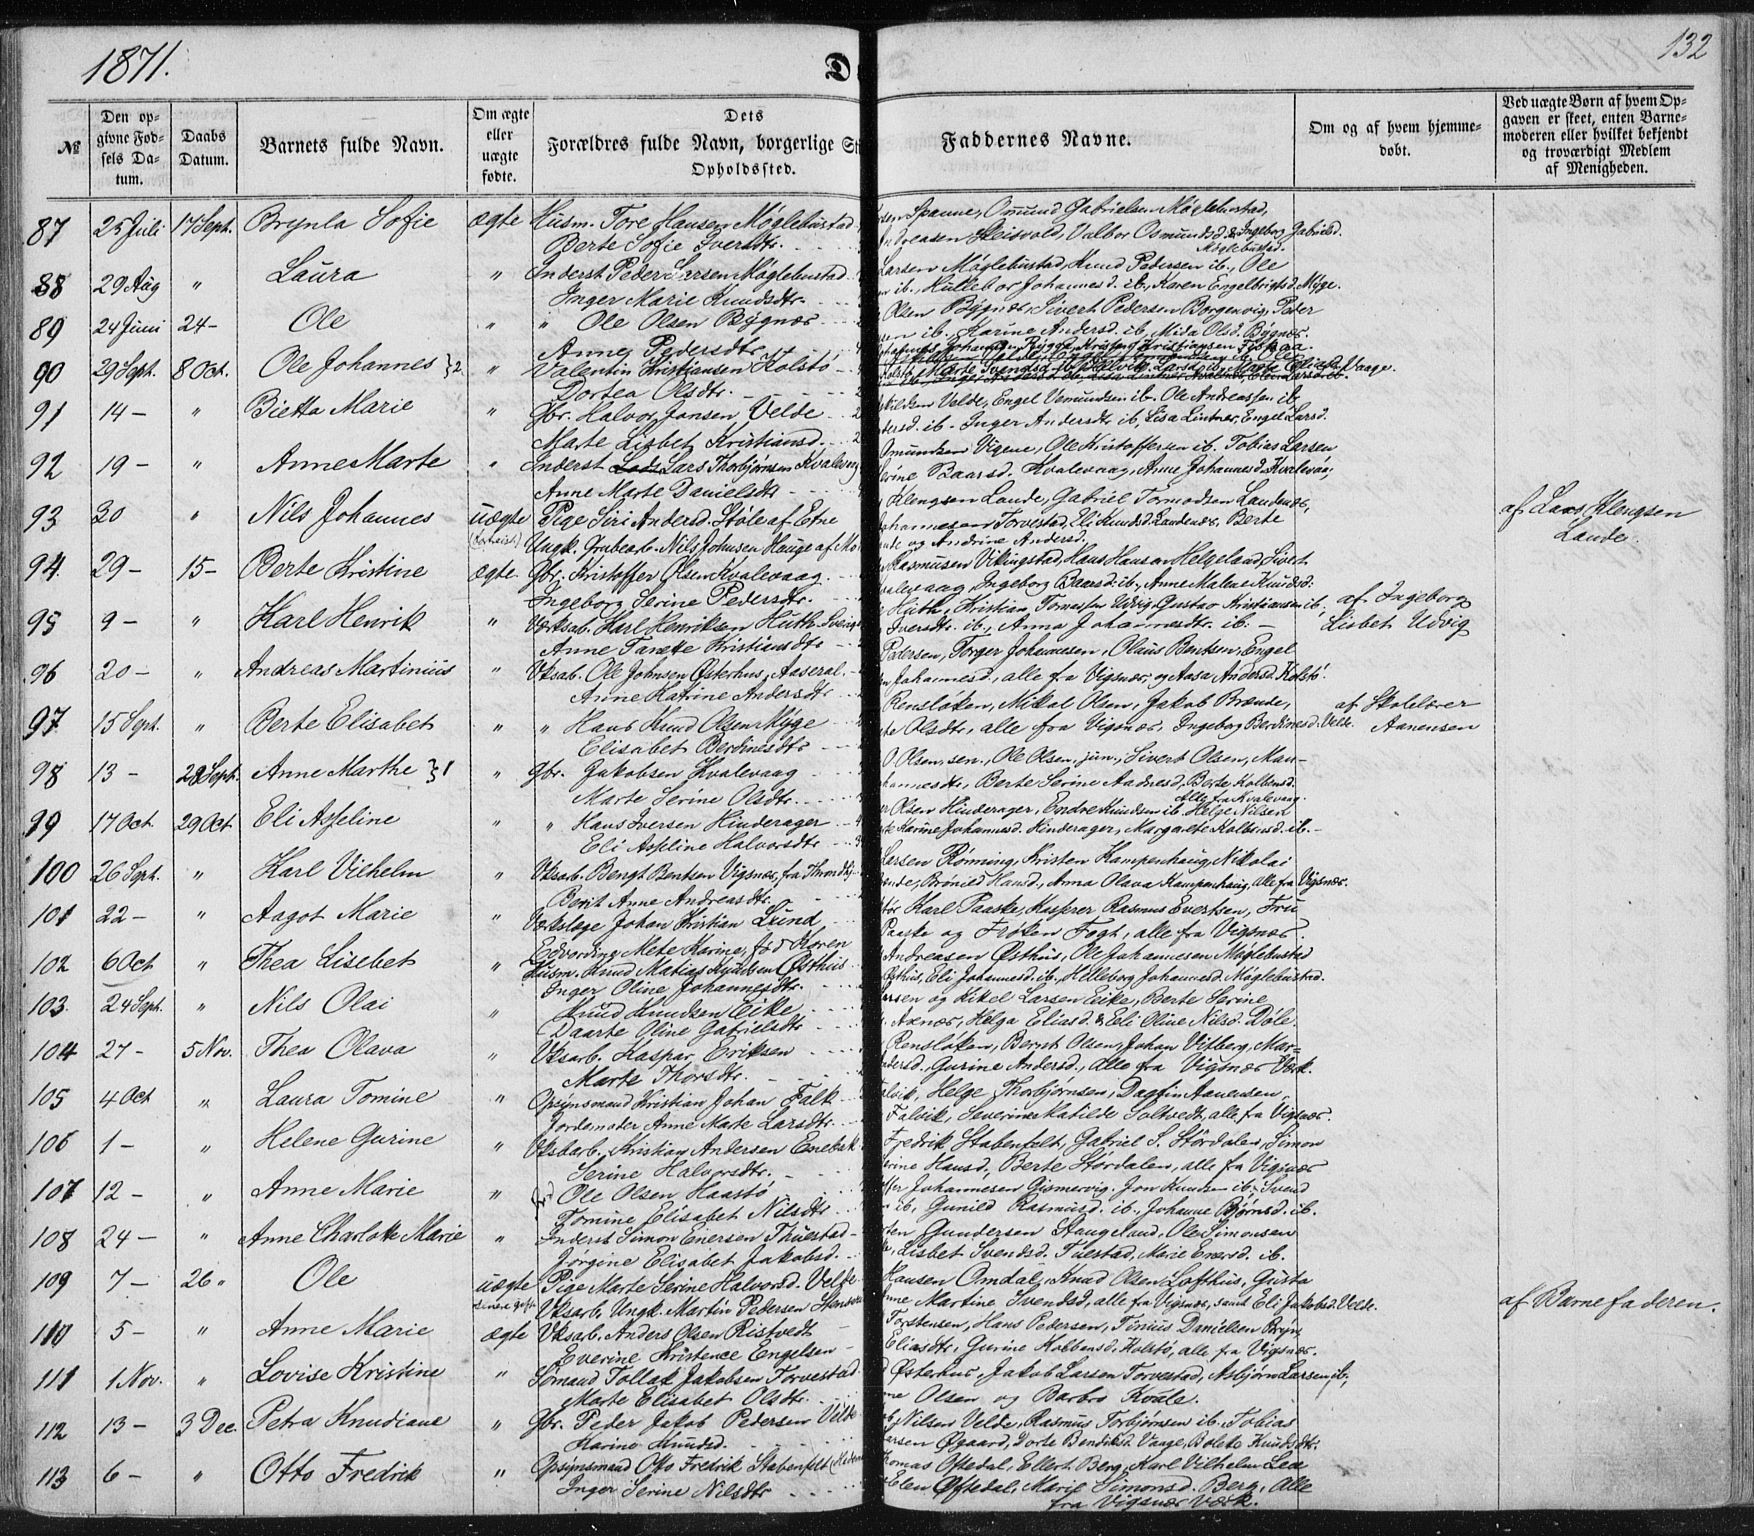 1871.
D
132
№
Den op-
givne Fød-
sels Da-
tum.
Daabs
Datum.
Barnets fulde Navn.
Om ægte
eller
uægte
fødte.
Dets
Forældres fulde Navn, borgerlige St
Opholdssted.
Faddernes Navne.
Om og af hvem hjemme-
døbt.
Ved uægte Børn af hvem Op-
gaven er skeet, enten Barne-
moderen eller hvilket bekjendt
og troværdigt Medlem
af Menigheden.
87 25 Juli 17 Sept. Brynla Sofie ægte Husm. Tore Hansen Møglebustad
Berte Sofie Iversdtr.
Spanne, Omund Gabrielsen Møglebustad,
Valbor Osmundsd. & Ingeborg Gabrielsd.
Møglebustad.
88 29 Aug " Laura " Inderst Peder Larsen Møglebustad
Inger Marie Knudsdtr.
Larsen Møglebustad, Knud Pedersen ib., Ole
ib., Hullebor Johannesd. ib., Karen Engelbrigtsd. Myge.
89 24 Juni 24 - Ole " " Ole Olsen Bygnæs
Anne Pedersdtr.
Olsen Bygnæs, Sivert Pedersen Borgenvig, Peder
ib. Karine Andersd. ib, Mida Olsd. Bygnæs.
90 29 Sept. 8 Oct. Ole Johannes }2 " Valentin Kristiansen Kolstø
Dortea Olsdtr.
91 14 - " Bietta Marie " Gbr. Halvor Jansen Velde
Marte Lisbet Kristiansd.
Velde, Engel Vemundsen ib. Ole Andreassen ib
ib. Inger Andersdtr ib, Lisa Lintner, Engel Larsd.
92 19 - " Anne Marte " Inderst Lars Thorbjørnsen Kvalevaag
Anne Marte Danielsdtr
Omundsen Vigene, Ole Kristoffersen ib. Tobias Larsen
Serine Baarsd. Kvalevaag, Anne Johannesd. Kvalevaag
93 30 " Nils Johannes uægte Pige Siri Andersd. Støle af Etne
Ungk. Grubearb. Nils Johnsen Hauge af Mo
Klengsen Lande, Gabriel Tormodsen Landenæs,
Johannesen Torvestad, Eli Knudsd. Landenæs, Berte
og Andrine Andersd.
af Lars Klengsen
Lande.
94 29 - 15 - Berte Kristine ægte Gbr. Kristoffer Olsen Kvalevaag
Ingeborg Serine Pedersdtr.
Rasmusen Vikingstad, Hans Hansen Helgeland, Sivert
Kvalevaag Ingeborg Baarsd. ib., Anne Malene Knudsd.
95 9 - " Karl Henrik " Værksab. Karl Henriksen Huth. Sverige
Anne Tanette Kristiansdtr
Huth, Kristian Tomassen Udvig, Gustav Kristiansen ib
Iversdtr. ib., Anna Johannesdtr. ib. -
af Ingeborg
Lisbet Udvig
96 20 - " Andreas Martinius " Vksab. Ole Johnsen Østerhus, Aaseral.
Anne Katrine Andersdtr
Pedersen, Torger Johannesen, Olaus Bentsen, Engel
Johannesd., alle fra Vigsnæs, og Aasa Andersd. Kolstø
97 15 Sept. " Berte Elisabet " " Hans Knud Olsen Myge
Elisabet Berdinesdtr
Rensløken, Mikal Olsen, Jakob Brænde,
Olsdtr., alle fra Vigsnæs, Ingeborg Berdinesd. Velde.
af Skolelærer
Aanensen
98 13 - 28 Sept. Anne Marthe }1 " Gbr. Jakobsen Kvalevaag
Marte Serine Olsdtr.
O. Olsen, sen., Ole Olsen, jun., Sivert Olsen, Man-
Berte Serine Aadnesd, Berte Kolbensd.
Alle fra Kvalevaag.
99 17 Oct. 29 Oct Eli Aspeline " " Hans Iversen Hinderager
Eli Aspline Halvorsdtr
Olsen Hinderager, Endre Knudsen ib. Helge Nilsen
Karine Johannesd. Hinderager, Margrete Kolbensd. ib. -
100 26 Sept. " Karl Vilhelm " Vksab. Bengt Bentsen Vigsnæs, fra Throndhj
Berit Anne Andreasdtr.
Larsen Rønning, Kristen Kampenhaug, Nikolai
Brønild Hansd., Anna Olava Kampenhaug, alle fra Vigsnæs.
101 22 - " Aagot Marie " Værkslæge Johan Kristian Lund
Edvardine Mete Karine, fød Koren
Karl Paaske, Kasserer Rasmus Evertsen, Fru
Paaske og Frøken Fogt, alle fra Vigsnæs.
102 6 Oct " Thea Lisebet " Husm. Knud Matias Knudsen Østhus
Inger Oline Johannesdtr.
Andreasen Østhus, Ole Johannesen Møglebustad
Østhus, Eli Johannesd. ib., Helleborg Johannesd. Møglebustad.
103. 24 Sept. " Nils Olai " Knud Knudsen Eike
Daarte Oline Gabrielsdtr
Larsen og Kikel Larsen Eike, Berte Serine
Axnæs, Helga Eliasd. & Eli Oline Nilsd. Døle.
104 27 - 5 Nov. Thea Olava " Vksarb. Kaspar Eriksen
Marte Thorsdtr.
Rensløken, Bernt Olsen, Johan Vitberg, Mar-
Gurine Andersd., alle fra Vigsnæs Værk.
105 4 Oct " Laura Tomine " Opsynsmand Kristian Johan Falk
Jordemoder Anne Marte Larsdtr
Helge Thorbjørnsen, Dagfin Aanensen,
Falvik, Severine Matilde Toltvedt, alle fra Vigsnæs.
106 1 - " Helene Gurine " Vksarb. Kristian Andersen Enebak
Serine Halvorsdtr.
Fredrik Stabenfelt, Gabriel S. Størdalen, Simon
Hansd., Berte Størdalen, alle fra Vigsnæs
107 12 - " Anne Marie " Ole Olsen Haastø
Tomine Elisabet Nilsdtr
Johannesen Gismervig, Jon Knudsen ib., Svend
ib, Gunild Rasmusd. ib., Johanne Bjørnsd. ib.
108 24 - " Anne Charlotte Marie " Inderst Simon Einersen Thuestad
Jørgine Elisabet Jakobsd.
Gundersen Haugeland, Ole Simonsen
Lisbet Svendsd. Tuestad, Marie Enersd. ib.
109 7 - 26 " Ole uægte Pige Marte Serine Halvorsd. Velde
Vksarb. Ungk. Martin Pedersen
Hansen Omdal, Knud Olsen Lofthus, Gusta
Martine Svendsd., alle fra Vigsnæs, samt Eli Jakobsd. Velde.
af Barnefaderen.
110 5 - " Anne Marie ægte Vksarb. Anders Olsen Ristvedt
Everine Kristence Engelsen
Torstensen, Hans Pedersen, Tinius Danielsen Bryn
Eliasdtr, Gurine Kobbensd. Kolstø, alle fra Vigsnæs.
111 1 Nov. " Lovise Kristine " Sømand Tollak Jakobsen Torvestad
Marte Elisabet Olsdtr.
Østerhus, Jakob Larsen Torvestad, Asbjørn Larsen ib,
Olsen og Barbro Kvale.
112 13 - 3 Dec. Petra Knudiane " Gbr. Peder Jakob Pedersen Velde
Karine Knudsd.
Nilsen Velde, Rasmus Torbjørnsen ib. Tobias
Larsen Øgaard, Dorte Bendiksd. Vaage, Bolete Knudsdtr.
113 6 - " Otto Fredrik " Opsynsmand Otto Fredrik Stabenfeldt
Inger Serine Nilsdtr
Thomas Oftedal, Ellert Berg, Karl Vilhelm Lea
Elen Oftedal, Marie Simonsd. Berg, Alle
fra Vigsnæs Værk.